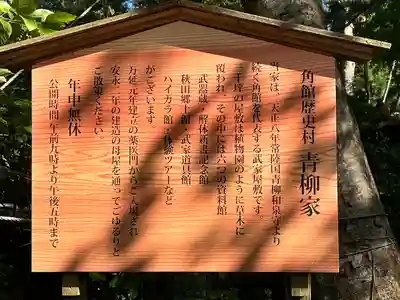 角館歴史村 青柳家
当家は、天正八年常陸国青柳和泉守より
続く角館を代表する武家屋敷です。
三千坪の屋敷は植物園のように草木に
覆われ、その中には六つの資料館
武器蔵・解体新書記念館
秋田郷土館・武家道具館
ハイカラ館・
ツアーなど
がございます
万延元年建立の薬医門からご入場され
安永二年の建造の母屋を通ってごゆるりと
ご散策ください
年中無休
公開時間 午前九時より午後五時まで